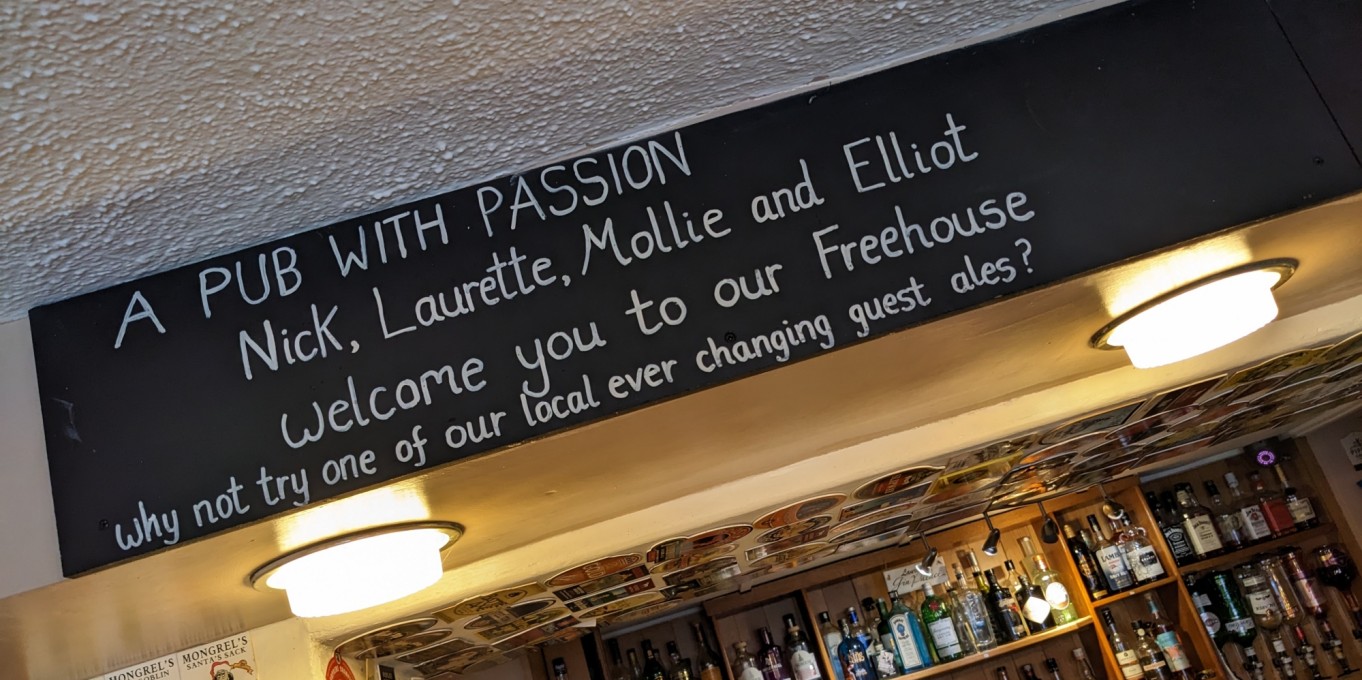 A PUB WITH PASSION
Nick, Laurette, Mollie and Elliot
Welcome you to our Freehouse
why not try one of our local ever changing guest ales?
MONGREL'S
MONGREL'S
SANTA'S SACK